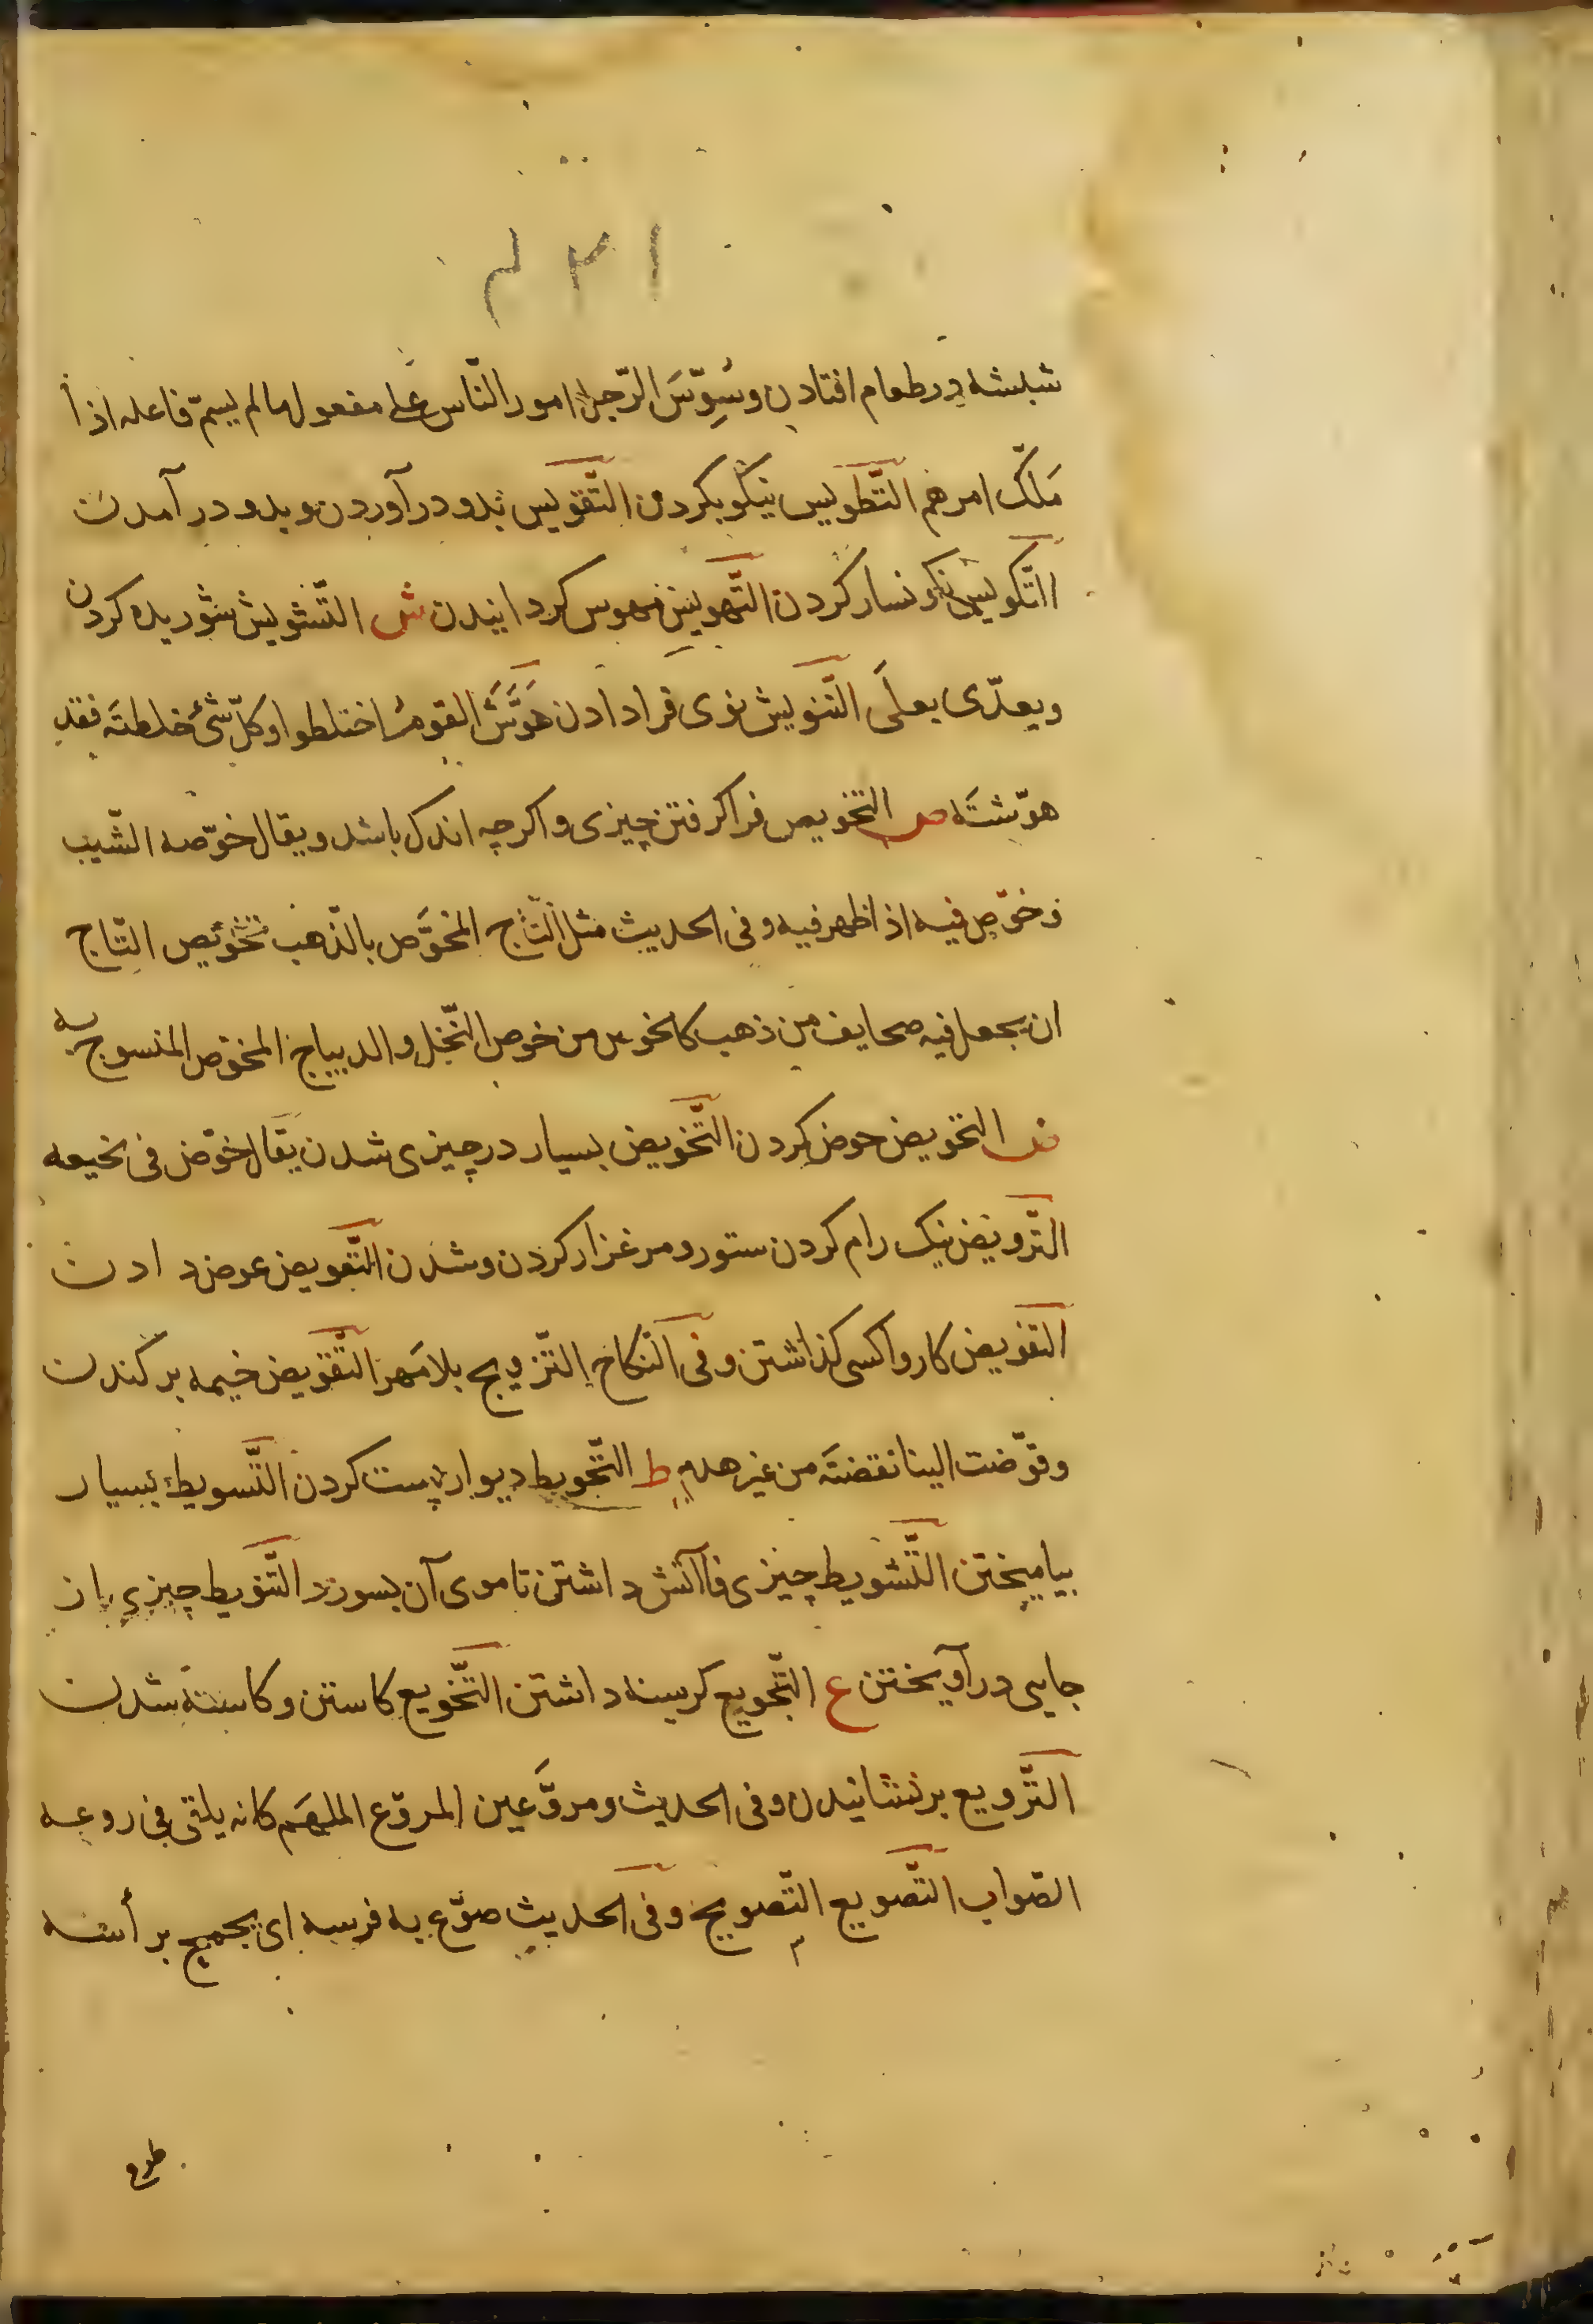 ۱۳۴
شبشه در طعام افتادن وسُوِّسَ الرّجل امور النّاس على مفعول ما لم يسمّ فاعله اذا
مَلّك امرهم التّطويس نيكو بكردن التّقويس بدو درآوردن و بدو در آمدن
التّكويس نكونسار كردن التّهويس مهوس كردانيدن ش التّشويش شوريده كردن
ويعدّى بعلَى التّنويش نوى فرا دادن هَوَّشَ القوم اختلطوا وكلّ شئ خلطته فقد
هوّشته ص التخويص فراكرفتن چيزى و اكرچه اندك باشد ويقال خوّصه الشّيب
وخوّص فيه اذا ظهر فيه وفى الحديث مثل التّاج المخوَّص بالذّهب تخويص التّاج
ان يجعل فيه صحايف من ذهب كالخوص من خوص النّخل والديباج المخوّص المنسوج به
ض التحويض حوض كردن التّخويض بسيار در چيزى شدن يقال خوّض فى نجيعه
التّرويض نيك رام كردن ستور ومرغزار كردن وشدن التّعويض عوض دادن
التفويض كار واكسى كذاشتن وفى النّكاح التّزويج بلا مهر التّقويض خيمه بركندن
وقوّضت البنا نقضته من غير هدم ط التّحويط ديوار پست كردن التّسويط بسيار
بياميختن التّشويط چيزى فا آتش داشتن تا موى آن بسوزد التّنويط چيزى از
جايى درآويختن ع التّجويع كرسنه داشتن التّخويع كاستن وكاسته شدن
التّرويع برنشانيدن وفى الحديث ومروَّعين المروّع الملهَم كانه يلقى فى روعه
الصّواب التّصويع التّصويح وفى الحديث صوّع به فرسه اى جمح برأسه
طوع